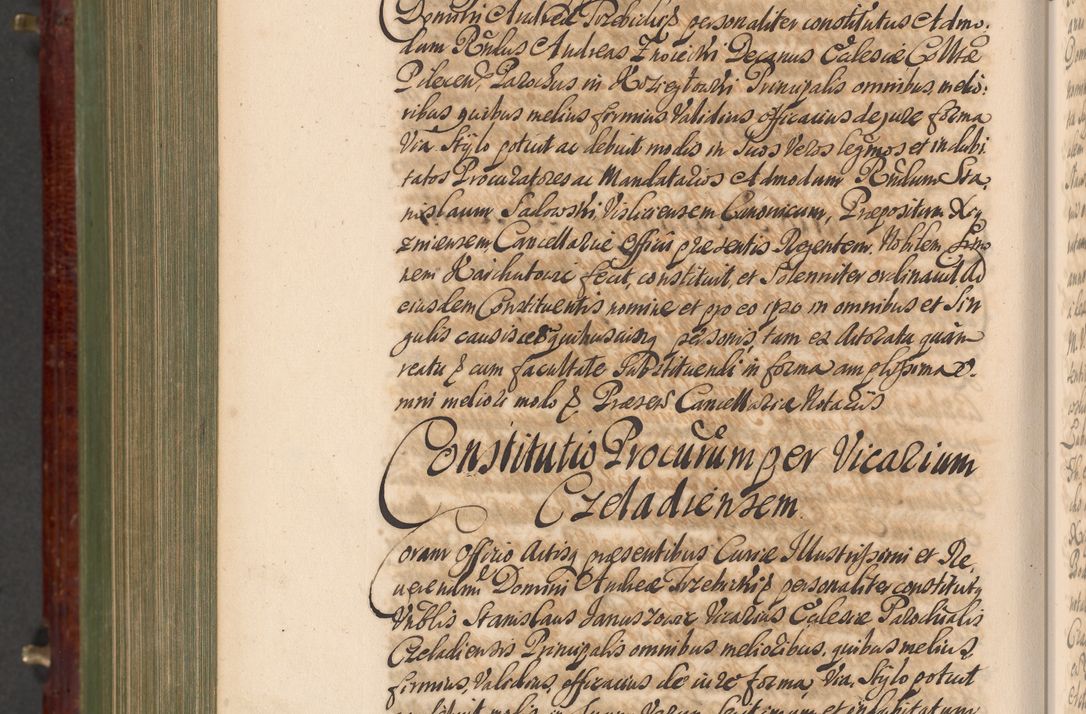 Domini Andreæ Trzebicki personaliter constitutus Admo,
dum Rndus Andreas Decanus Ecclesiæ Colltæ
Pilecen, Parochus in Koziegłowki Principalis omnibus melio:
ribus quibus melius firmius Validius efficacius de jure forma
Via Stylo potuit ac debuit modis in Suos Veros legimos et indubi,
tatos Procuratores ac Mandatarios Admodum Rndum Sta,
nislaum Sadowski Visliciensem Canonicum, Præpositum Xią
znensem, Cancellariæ Officii præsentis Regentem. Noblem
nem fecit, constituit, et Solenniter ordinauit Ad
eiusdem Constituentis nomine et pro eo ipso in omnibus et Sin
gulis causis quibuscunq personis, tam ea Actoratu quam
reatu p cum facultate Substituendi in forma amplissima o.
mni meliori modo p Præsen Cancellariæ Notariis
Constitutio Procurum per Vicarium
Czeladiensem.
Coram Officio Actisq præsentibus Curiæ Illustrissimi et Re,
uerendmi Domini Andreæ Trzebicki personaliter constitutq
Vnblis Stanislaus Januszowic Vicarius Ecclesiæ Parochialis
Czeladiensis Principalis omnibus melioribus, quibus melius,
firmius, Validius, efficacius de iure forma, Via, Stylo potuit
ac debuit modis in Suum Verum legitimum et indubitatum